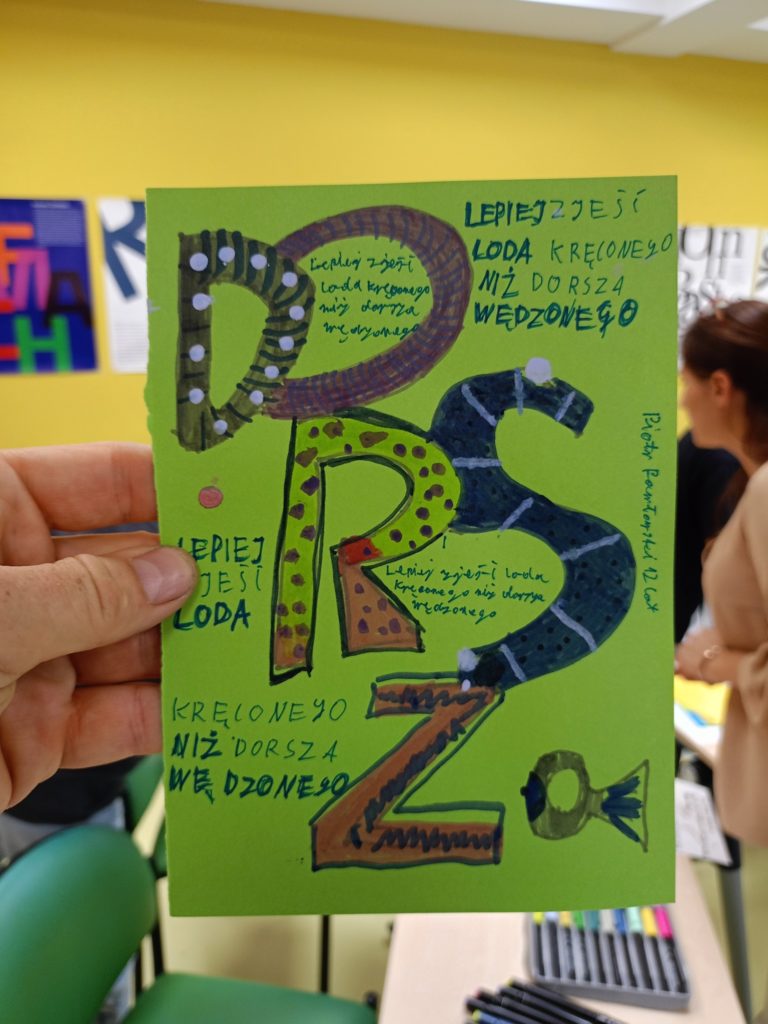 DORSZ
LEPIEJ ZJEŚĆ
LODA KRĘCONEGO
NIŻ DORSZA
WĘDZONEGO
Lepiej zjeść
loda kręconego
niż dorsza
wędzonego
Piotr 12 lat
Lepiej zjeść loda
kręconego niż dorsza
wędzonego
LEPIEJ
ZJEŚĆ
LODA
KRĘCONEGO
NIŻ DORSZA
WĘDZONEGO